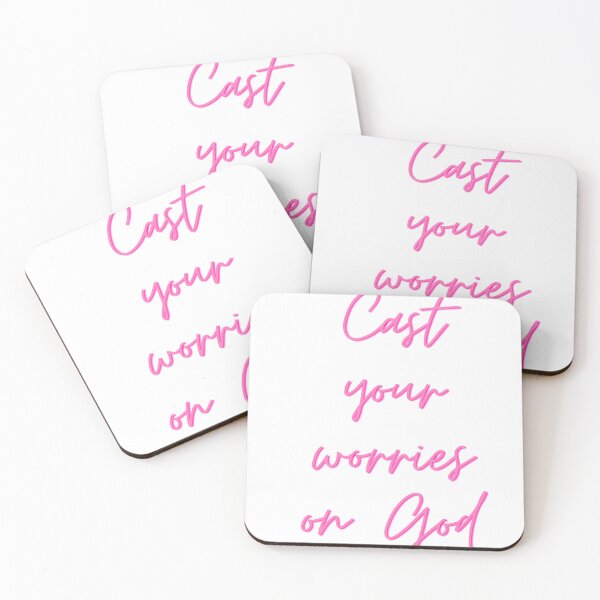 Cast
your
Cast
your
worries
Cast
your
on
Cast
your
worries
on God